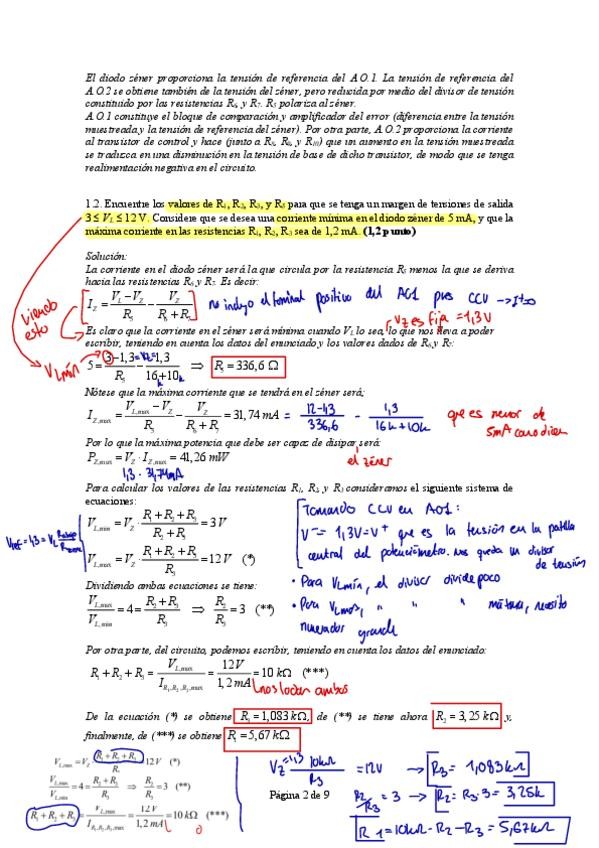 El diodo zéner proporciona la tensión de referencia del A.O.1. La tensión de referencia del
A.O.2 se obtiene también de la tensión del zéner, pero reducida por medio del divisor de tensión
constituido por las resistencias R₆ y R₇. R₅ polariza al zéner.
A.O.1 constituye el bloque de comparación y amplificador del error (diferencia entre la tensión
muestreada y la tensión de referencia del zéner). Por otra parte, A.O.2 proporciona la corriente
al transistor de control y hace (junto a R₈, R₉, y R₁₀) que un aumento en la tensión muestreada
se traduzca en una disminución en la tensión de base de dicho transistor, de modo que se tenga
realimentación negativa en el circuito.
1.2. Encuentre los valores de R₁, R₂, R₃, y R₅ para que se tenga un margen de tensiones de salida
3 ≤ V_L ≤ 12 V. Considere que se desea una corriente mínima en el diodo zéner de 5 mA, y que la
máxima corriente en las resistencias R₁, R₂, R₃ sea de 1,2 mA. (1,2 punto)
Solución:
La corriente en el diodo zéner será la que circula por la resistencia R₅ menos la que se deriva
hacia las resistencias R₆ y R₇. Es decir:
I_Z = (V_L − V_Z)/R₅ − V_Z/(R₆ + R₇) no incluyo el terminal positivo del AO1 pues CCV → I=0
viendo esto
Vz es fija = 1,3V
Es claro que la corriente en el zéner será mínima cuando V_L lo sea, lo que nos lleva a poder
escribir, teniendo en cuenta los datos del enunciado y los valores dados de R₆ y R₇:
V_Lmín 5 = (3 − 1,3)/R₅ − 1,3/(16k + 10k) ⇒ R₅ = 336,6 Ω
Nótese que la máxima corriente que se tendrá en el zéner será;
I_Z,max = (V_L,max − V_Z)/R₅ − V_Z/(R₆ + R₇) = 31,74 mA = (12−1,3)/336,6 − 1,3/(16k+10k) que es menor de 5mA como dicen
Por lo que la máxima potencia que debe ser capaz de disipar será:
el zéner
P_Z,max = V_Z · I_Z,max = 41,26 mW
1,3 · 31,74mA
Para calcular los valores de las resistencias R₁, R₂ y R₃ consideramos el siguiente sistema de
ecuaciones:
V_L,min = V_Z · (R₁ + R₂ + R₃)/(R₂ + R₃) = 3 V
V_L,max = V_Z · (R₁ + R₂ + R₃)/R₃ = 12 V (*)
Tomando CCV en AO1:
V⁻ = 1,3V = V⁺ que es la tensión en la patilla
central del potenciómetro. Nos queda un divisor
de tensión
• Para V_Lmín, el divisor divide poco
• Para V_Lmax, " " máximo, necesito
numerador grande
Dividiendo ambas ecuaciones se tiene:
V_L,max/V_L,min = 4 = (R₂ + R₃)/R₃ ⇒ R₂/R₃ = 3 (**)
Por otra parte, del circuito, podemos escribir, teniendo en cuenta los datos del enunciado:
R₁ + R₂ + R₃ = V_L,max/I_R1,R2,R3,max = 12 V/1,2 mA = 10 kΩ (***)
nos lo dan ambos
De la ecuación (*) se obtiene R₃ = 1,083 kΩ, de (**) se tiene ahora R₂ = 3,25 kΩ y,
finalmente, de (***) se obtiene R₁ = 5,67 kΩ
V_L,max = V_Z · (R₁ + R₂ + R₃)/R₃ 12 V (*)
V_L,max/V_L,min = 4 = (R₂ + R₃)/R₃ ⇒ R₂/R₃ = 3 (**)
R₁ + R₂ + R₃ = V_L,max/I_R1,R2,R3,max = 12 V/1,2 mA = 10 kΩ (***)
Vz=1,3 10kΩ/R₃ = 12V → R₃ = 1,083kΩ
Página 2 de 9
R₂/R₃ = 3 → R₂ = R₃·3 = 3,25k
R1 = 10kΩ − R₂ − R₃ = 5,67kΩ